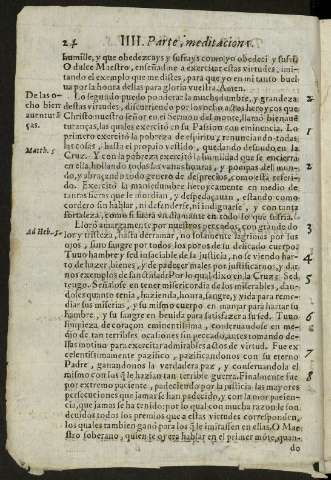 24 IIII. Parte, meditacion 1.
humilde, y que obedezcays y sufrays como yo obedeci y sufri.
O dulce Maestro, enseñadme a exercitar estas virtudes, imi-
tando el exemplo que me distes, para que yo en mi tanto buel-
ua por la honra dellas para gloria vuestra. Amen.
De las o-
cho bien
auenturã
ças.
Lo segundo puedo ponderar la muchedumbre, y grandeza
destas virtudes, discurriendo por los ocho actos heroycos que
Christo nuestro señor en el Sermon del monte, llamò bienauẽ
turanças, las quales exercitò en su Passion con eminencia. Lo
primero exercitò la pobreza de espiritu, renunciando todas
las cosas, hasta el proprio vestido, quedando desnudo en la
Matth. 5
Cruz. Y con la pobreza exercitò la humildad que se encierra
en ella, hollando todas las vanas honras, y pompas del mun-
do, y abraçando todo genero de desprecios, como està referi-
do. Exercitò la mansedumbre heroycamente en medio de
tantas fieras que le mordian, y despedaçauan, estando como
cordero sin hablar, ni defenderse, ni indignarse, y con tanta
fortaleza, como si fuera vn diamante en todo lo que sufria.
Ad Heb. 5.
Llorò amargamente por nuestros pecados, con grande do
lor y tristeza, hasta derramar, no solamente lagrimas por los
ojos, sino sangre por todos los poros de su delicado cuerpo.
Tuuo hambre y sed insaciable de la justicia, no se viendo har-
to de hazer bienes, y de padecer males por justificarnos, y dar
nos exemplos de sanctidad: Por lo qual dixo en la Cruz: Sed
tengo. Señalose en tener misericordia de los miserables, dan-
doles quanto tenia, hazienda, honra, sangre, y vida para reme-
diar sus miserias, y su mismo cuerpo en manjar para hartar su
hambre, y su sangre en beuida para satisfazer su sed. Tuuo
limpieza de coraçon eminentissima, conseruandose en me-
dio de tan terribles ocasiones sin pecado, antes tomando de-
llas motiuo para exercitar admirables actos de virtud. Fue ex-
celentissimamente pazifico, pazificandonos con su eterno
Padre, ganandonos la verdadera paz, y conseruandola el
mismo con los q̃ le hazian tan terrible guerra. Finalmente fue
por extremo paciente, padeciendo por la justicia las mayores
persecuciones que jamas se han padecido, y con la mor pacien-
cia, que jamas se ha tenido: por lo qual con mucha razon le son
deuidos todos los premios que a estas virtudes corresponden,
los quales tambien ganò para los q̃ le imitassen en ellas. O Ma
estro soberano, quien te oyera hablar en el primer mõte, quan-
do
1
2
3
4
5
6
7
8